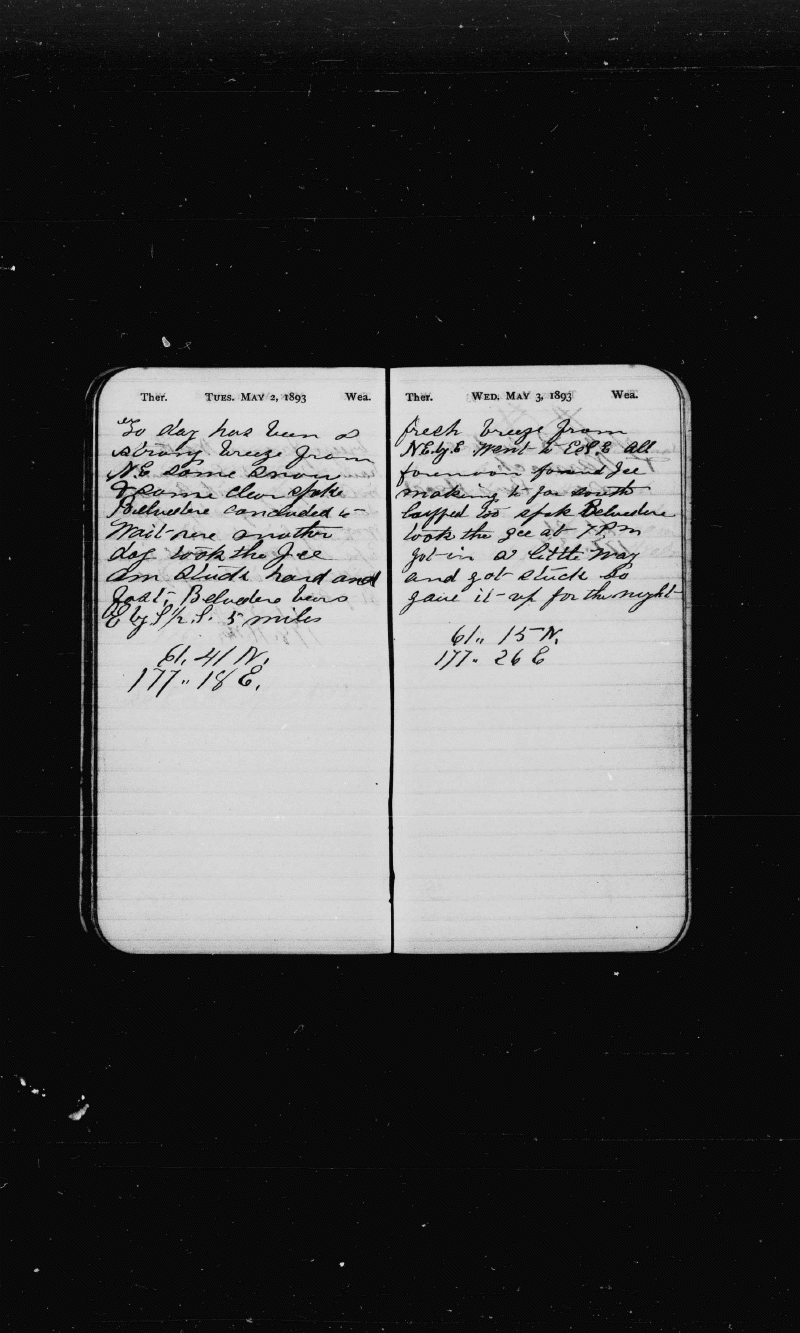 Ther. TUES. MAY 2, 1893 Wea.
To day has been a
strong breeze from
N.E. some snow
& some clear spoke
Belvedere concluded to
Wait here another
day took the Ice
am stuck hard and
fast, Belvedere bears
E by S ½ S. 5 miles
61, 41 N.
177 ,, 18 E.
Ther. WED. MAY 3, 1893 Wea.
fresh breeze from
NE.y.E Went to E.S.E all
forenoon found Ice
making to far south
luffed too spok Belvedere
took the Ice at 7 P.m
got in a little Way
and got stuck so
gave it up for the night
61 ,, 15 N.
177 ,, 26 E